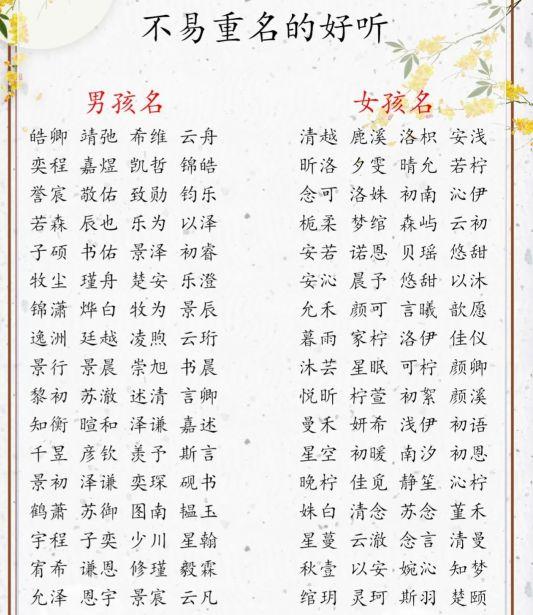 不易重名的好听
男孩名
皓卿 靖弛 希维 云舟
奕程 嘉煜 凯哲 锦皓
誉宸 敬佑 致勋 钧乐
若森 辰也 乐为 以泽
子硕 书佑 景泽 初睿
牧尘 瑾舟 楚安 乐澄
锦潇 烨白 牧为 景辰
逸洲 廷越 凌煦 云珩
景行 景晨 崇旭 书晨
黎初 苏澈 述清 言卿
知衡 暄和 泽谦 嘉述
千昱 彦钦 羡予 斯言
景初 泽谦 奕琛 砚书
鹤萧 苏御 图南 韫玉
宇程 子奕 少川 星翰
宥希 谦恩 修瑾 毅霖
允泽 恩宇 景宸 云凡
女孩名
清越 鹿溪 洛枳 安浅
昕洛 夕雯 晴允 若柠
念可 洛姝 初南 沁伊
栀柔 梦绾 森屿 云初
安若 诺恩 贝瑶 悠甜
安沁 晨予 悠甜 以沐
允禾 颜可 言曦 歆愿
暮雨 家柠 洛伊 佳仪
沐芸 星眠 可柠 颜卿
悦昕 柠萱 初絮 颜溪
曼禾 妍希 浅伊 初语
星空 初暖 南汐 初恩
晚柠 佳觅 静笙 沁柠
姝白 清念 苏念 堇禾
星蔓 云澈 念言 清曼
秋壹 以安 婉沁 知梦
绾玥 灵珂 斯羽 楚颐